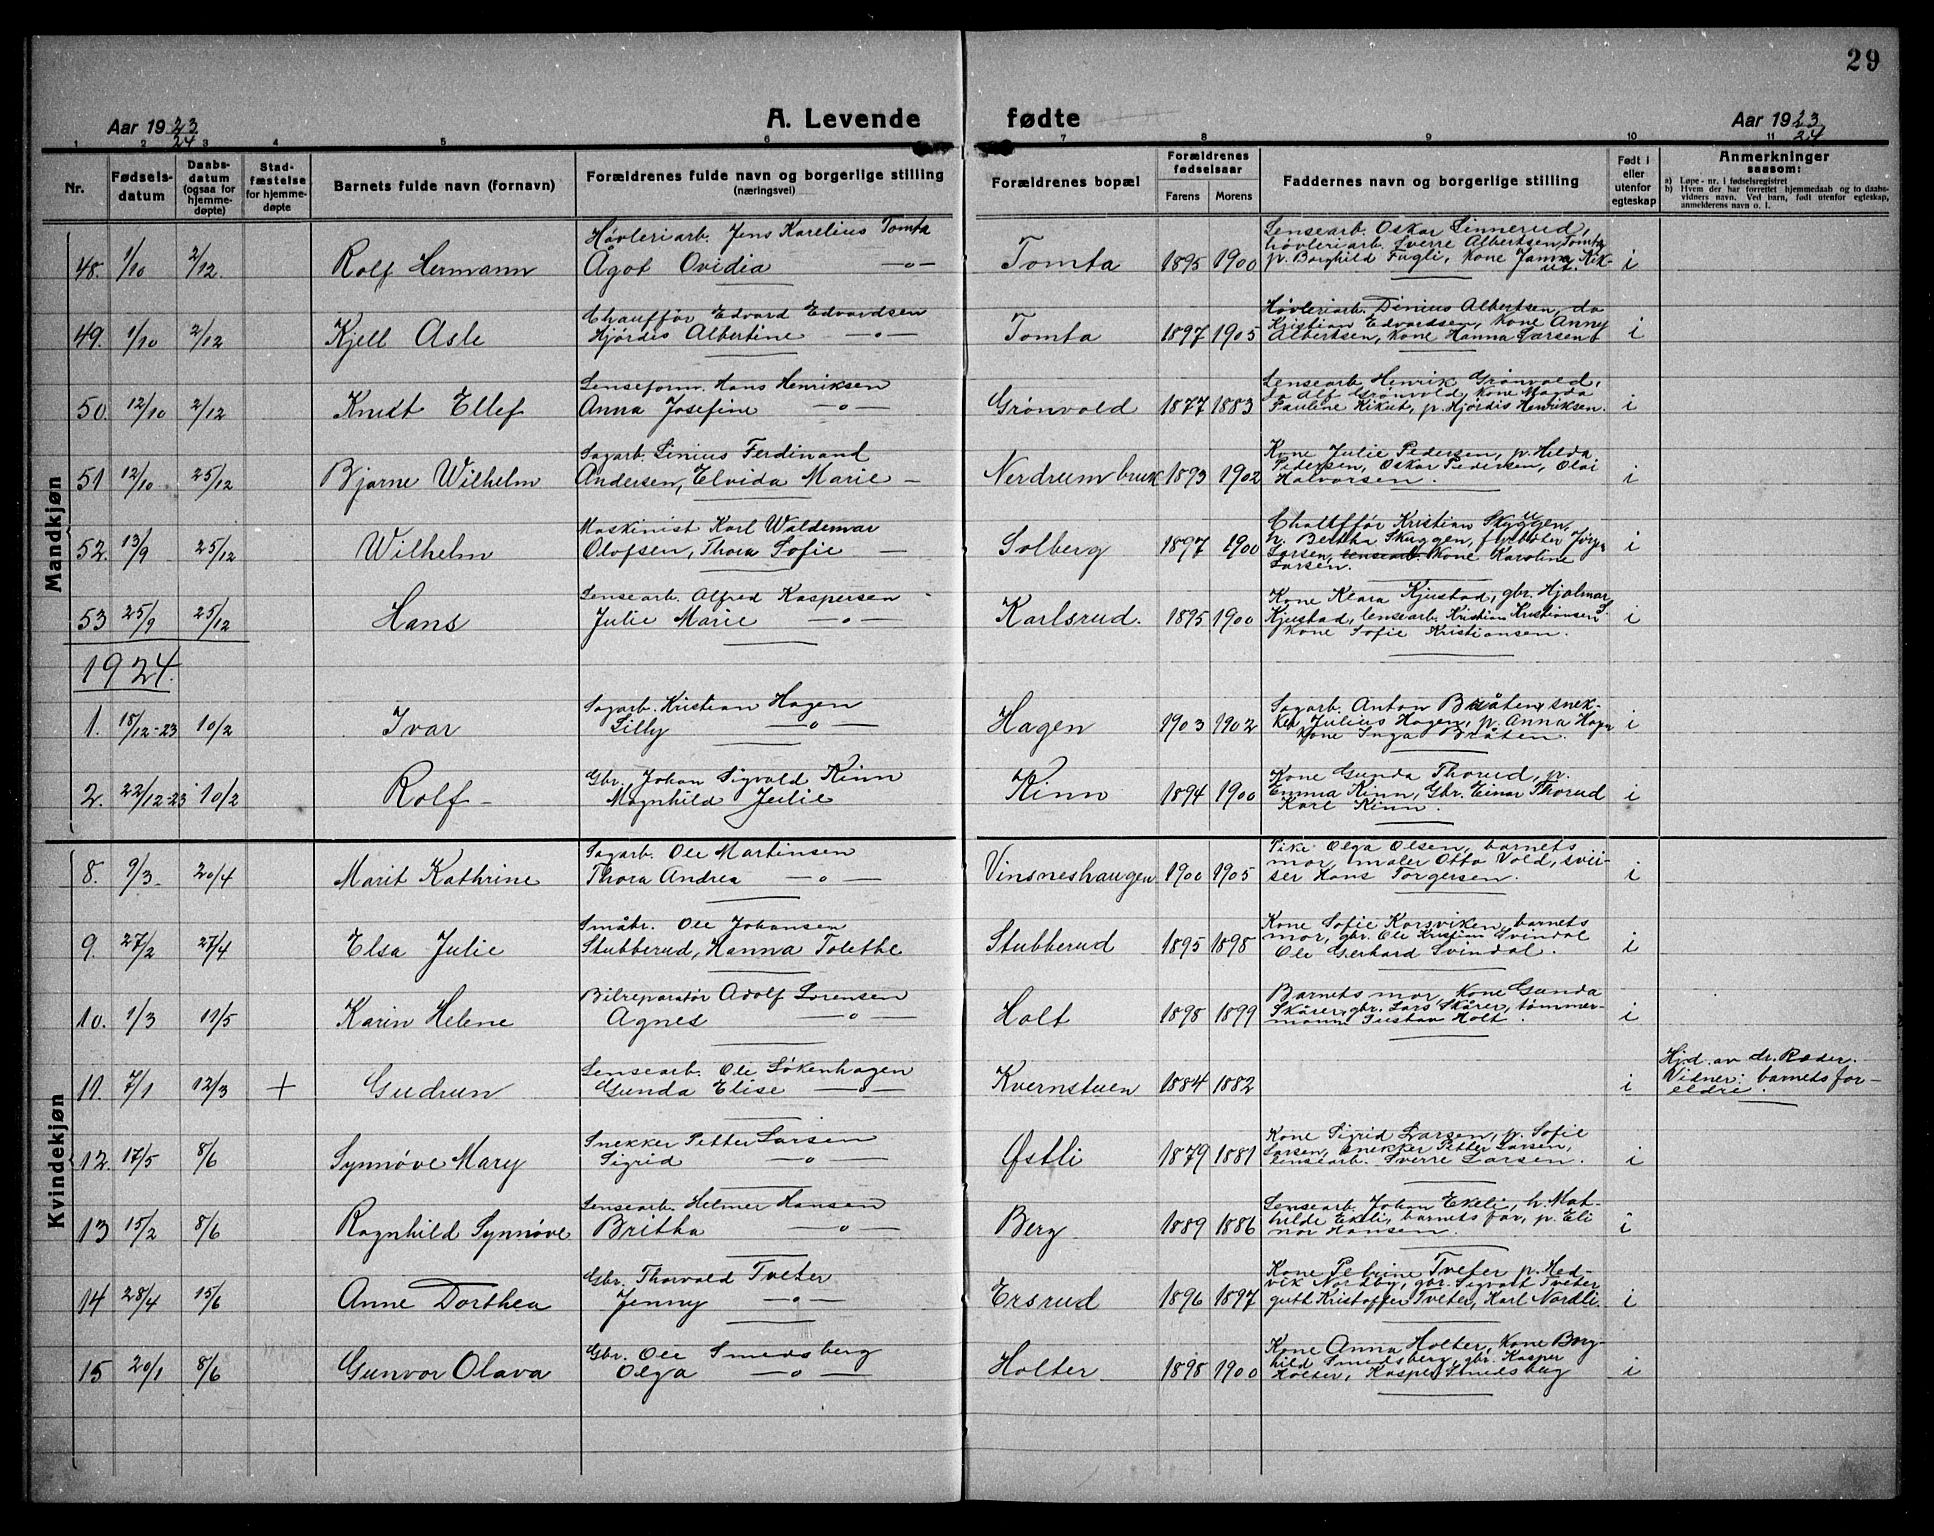 29
Aar 1923/24
A. Levende fødte
Aar 1923/24
1 2 3 4 5 6 7 8 9 10 11
Nr. Fødselsdatum Daabsdatum (ogsaa for hjemmedøpte) Stadfæstelse for hjemmedøpte Barnets fulde navn (fornavn) Forældrenes fulde navn og borgerlige stilling (næringsvei) Forældrenes bopæl Forældrenes fødselsaar Farens Morens Faddernes navn og borgerlige stilling Født i eller utenfor egteskap Anmerkninger saasom:
a) Løpe-nr. i fødselsregistret
b) Hvem der har forrettet hjemmedaab og to daabsvidners navn. Ved barn, født utenfor egteskap, anmelderens navn o. l.
Mandkjøn
48. 1/10 2/12. Rolf Hermann
Høvleriarb. Jens Karelius Tomta
Agot Ovidia —"—
Tomta 1895 1900
Lensearb. Oskar Linnerud,
høvleriarb. Sverre Albertsen Tomta
p. Borghild Fugli, Kone Janna Kik-
ut.
i
49. 1/10 2/12 Kjell Asle
Chauffør Edvard Edvardsen
Hjørdis Albertine —"—
Tomta 1897 1905
Høvleriarb. Dinius Albertsen, do
Kristian Edvardsen, Kone Anny
Albertsen, Kone Hanna Larsen
i
50. 12/10 2/12 Knut Ellef
Senseform. Hans Henriksen
Anna Josefine —"—
Grønvold 1877 1883
Lensearb. Henrik Grønvold,
do Alf Grønvold, Kone Magda
Pauline Kikut, p. Hjørdis Henriksen.
i
51 12/10 25/12 Bjarne Wilhelm
Sagarb. Linius Ferdinand
Andersen, Elvida Marie —
Nerdrum bruk 1893 1902
Kone Julie Pedersen, p. Hilda
Pedersen, Oskar Pedersen, Olai
Halvorsen.
i
52. 13/9 25/12 Wilhelm
Maskinist Karl Waldemar
Olofsen, Thora Sofie —
Solberg 1897 1900
Chauffør Kristian Skyggen,
h. Bertha Skyggen, fløter Jørgen
Larsen, Kone Karoline
Larsen.
i
53 25/9 25/12 Hans
Lensearb. Alfred Kaspersen
Julie Marie —"—
Karlsrud. 1895 1900
Kone Klara Kjustad, gbr. Hjalmar
Kjustad, lensearb. Kristian Kristiansen
kone Sofie Kristiansen.
i
1924.
1. 18/12-23 10/2 Ivar
Sagarb. Kristian Hagen
Lilly —"—
Hagen 1903 1902
Sagarb. Anton Bråten, snek-
ker Julius Hagen, p. Anna Hagen
kone Inga Bråten.
i
2. 22/12-23 10/2 Rolf
Gbr. Johan Sigvald Kinn
Magnhild Julie
Kinn 1894 1900
Kone Gunda Thorud, p.
Emma Kinn, Gbr. Einar Thorud
Karl Kinn.
i
Kvindekjøn
8. 9/3 20/4 Marit Kathrine
Sagarb. Ole Martinsen
Thora Andrea —"—
Vinsneshaugen 1900 1905
Pike Olga Olsen, barnets
mor, maler Otto Vold, svei-
ser Hans Torgersen.
i
9. 27/2 27/4 Elsa Julie
Småbr. Ole Johansen
Stubberud, Hanna Tolette
Stubberud 1895 1898
Kone Sofie Korsviken, barnets
mor, gbr. Ole Kristian Svindal
Ole Gerhard Svindal.
i
10. 1/3 11/5 Karin Helene
Bilreparatør Adolf Sørensen
Agnes —"—
Holt 1898 1899
Barnets mor, Kone Gunda
Skårer, gbr. Lars Skårer, tømmer-
mann Gustav Holt.
i
11. 7/1 12/3 + Gudrun
Lensearb. Ole Løkenhagen
Gunda Elise —"—
Kvernstuen 1884 1882
i
Hjd. av dr. Røder.
Vidner: barnets for-
eldre.
12. 17/5 8/6 Synnøve Mary
Snekker Petter Larsen
Sigrid —"—
Østli 1879 1881
Kone Sigrid Larsen, p. Sofie
Larsen, snekker Petter Larsen,
lensearb. Sverre Larsen.
i
13 15/2 8/6 Ragnhild Synnøve
Lensearb. Helmer Hansen
Britha —"—
Berg 1889 1886
Lensearb. Johan Ekeli, h. Mat-
hilde Ekeli, barnets far, p. Eli
nor Hansen.
i
14 28/4 15/6 Anne Dorthea
Gbr. Thorvald Tveter
Jenny —"—
Ersrud 1896 1897
Kone Petrine Tveter p. Hed-
vik Nordby, gbr. Sigvart Tveter
gutt Kristoffer Tveter, Karl Nordli.
i
15 20/1 8/6 Gunvor Olava
Gbr. Ole Smedsberg
Olga —"—
Holter 1898 1900
Kone Anna Holter, Kone Borg-
hild Smedsberg, gbr. Kasper
Holter, Kasper Smedsberg
i